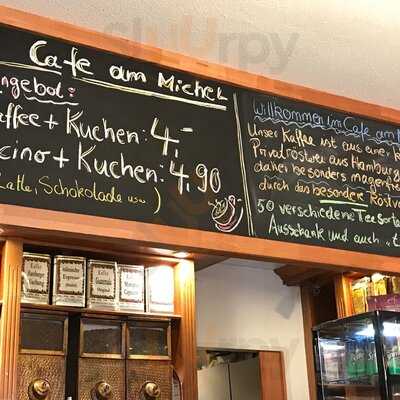 Cafe am Michel
ngebot:
ffee + Kuchen: 4,-
cino + Kuchen: 4,90
Latte, Schokolade usw)
Willkommen im Cafe am M
Unser Kaffee ist aus einer k
Privatrösterei aus Hamburg
daher besonders magenfre
durch das besondere Röstver
50 verschiedene Tee Sorte
Ausschank und auch
sluurpy